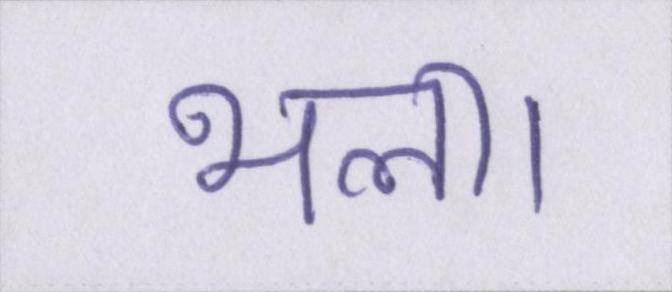 भला।